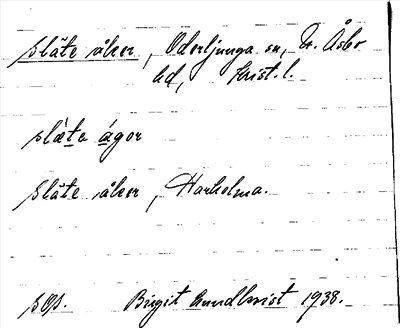 släte åker, Oderljunga sn, N. Åsbo
hd, Krist. l.
slæ̀ta ágor
Släte åker, Harholma.
sOp. Birgit Lundkvist 1938.